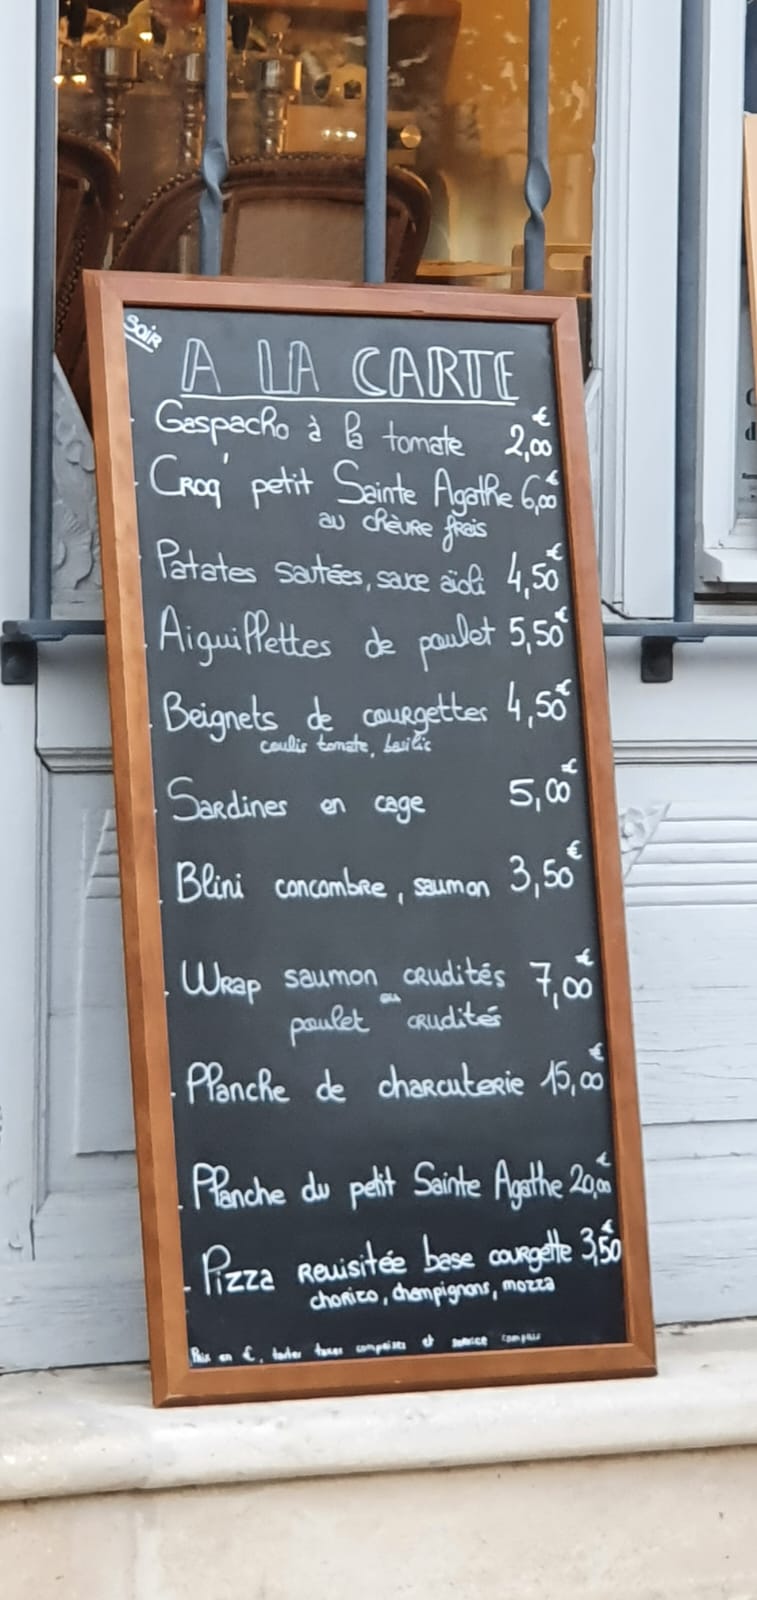 SOIR
A LA CARTE
Gaspacho à la tomate 2,00€
CROQ' petit Sainte Agathe 6,00€
au chèvre frais
Patates sautées, sauce aïoli 4,50€
Aiguillettes de poulet 5,50€
Beignets de courgettes 4,50€
coulis tomate, basilic
Sardines en cage 5,00€
Blini concombre, saumon 3,50€
Wrap saumon crudités 7,00€
ou
poulet crudités
Planche de charcuterie 15,00€
Planche du petit Sainte Agathe 20,00€
Pizza revisitée base courgette 3,50€
chorizo, champignons, mozza
Prix en €, toutes taxes comprises et service compris